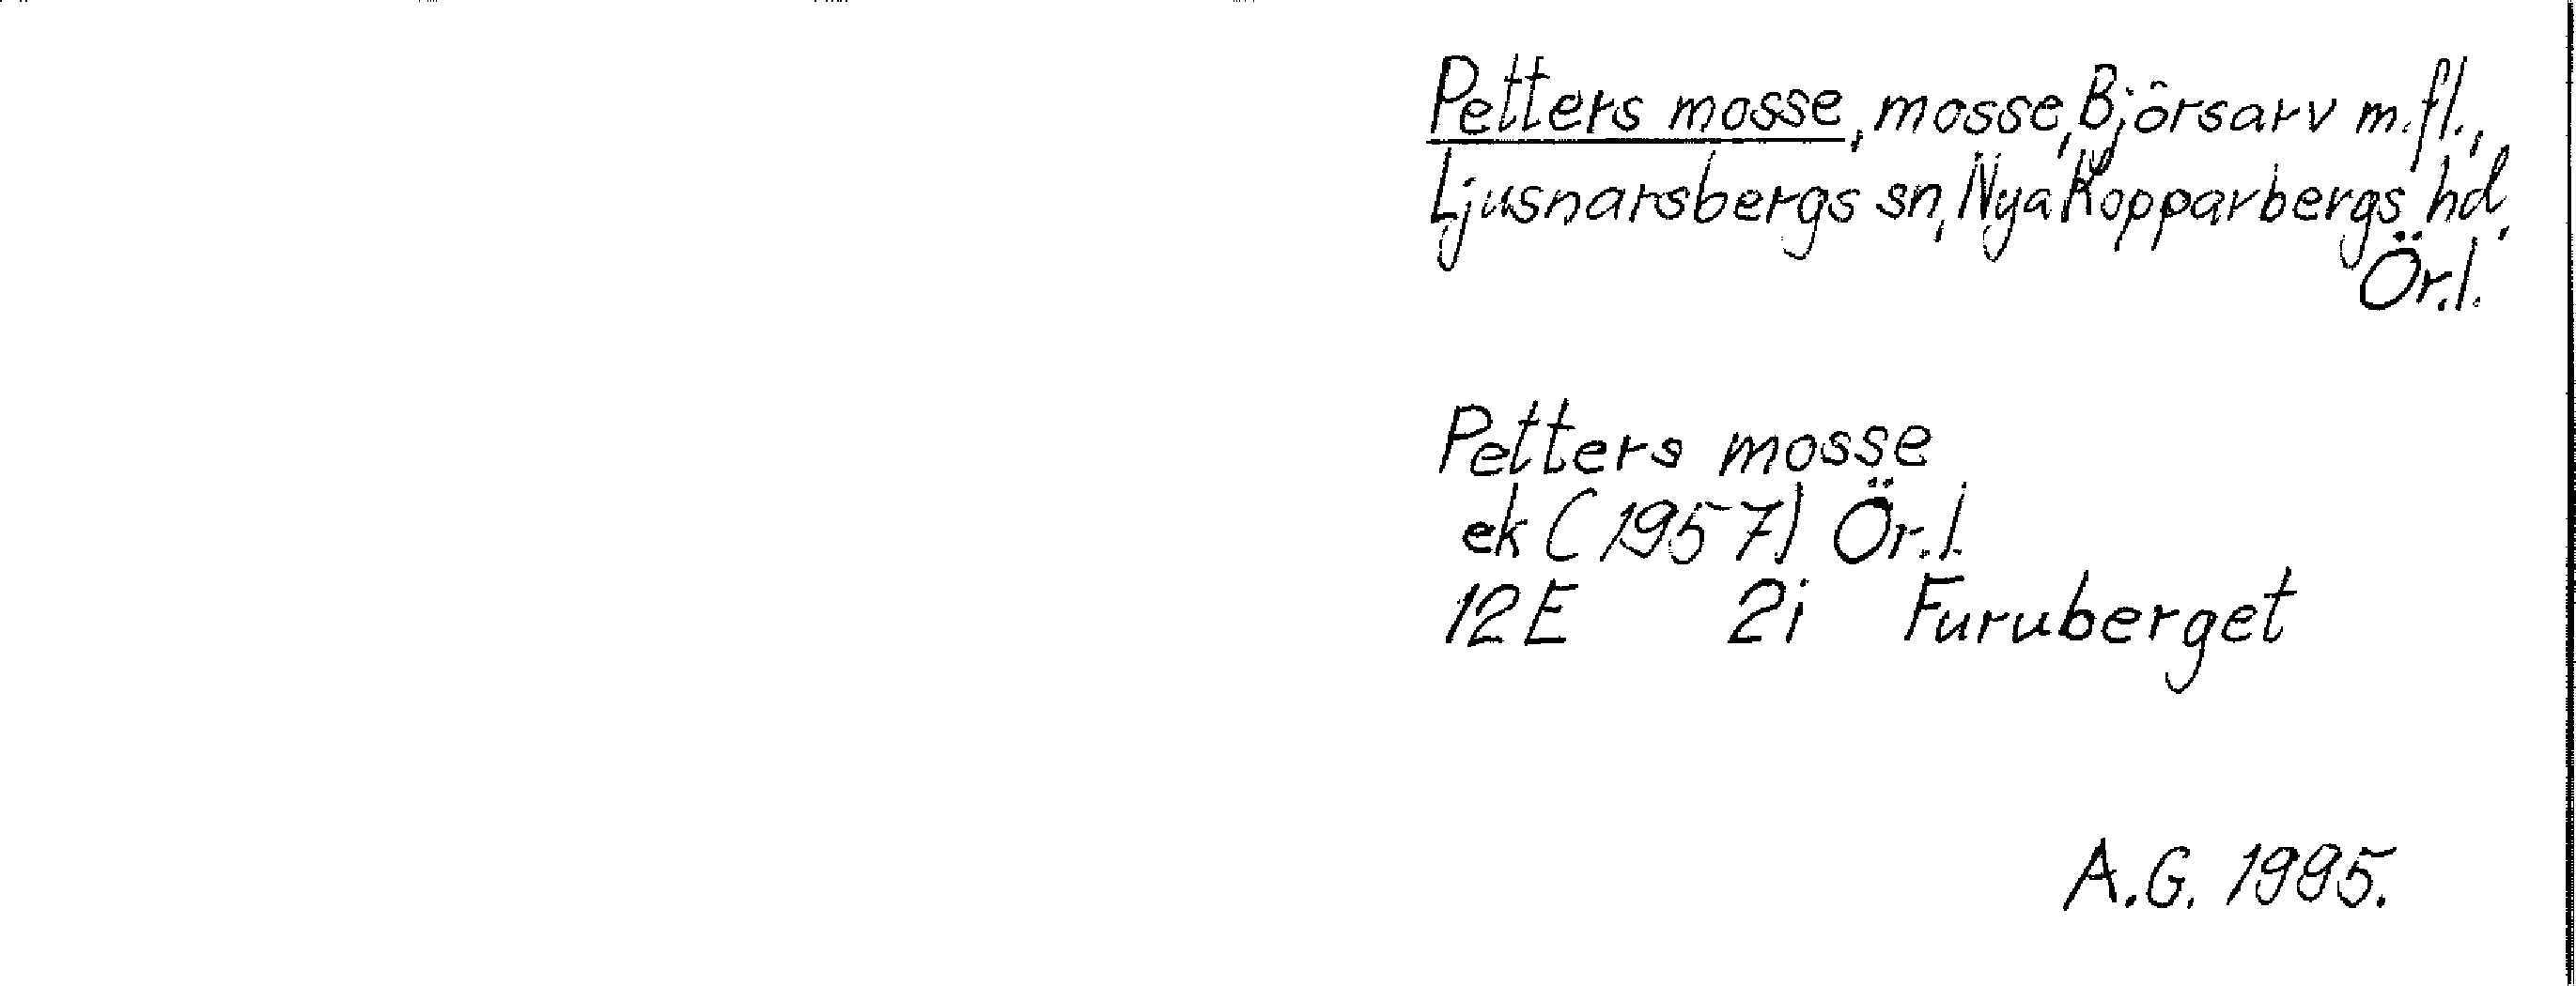 Petters mosse, mosse, Björsarv m.fl.,
Ljusnarsbergs sn, Nya Kopparbergs hd,
Ör.l.
Petters mosse
ek (1957) Ör.l.
12E 2i Furuberget
A.G. 1995.